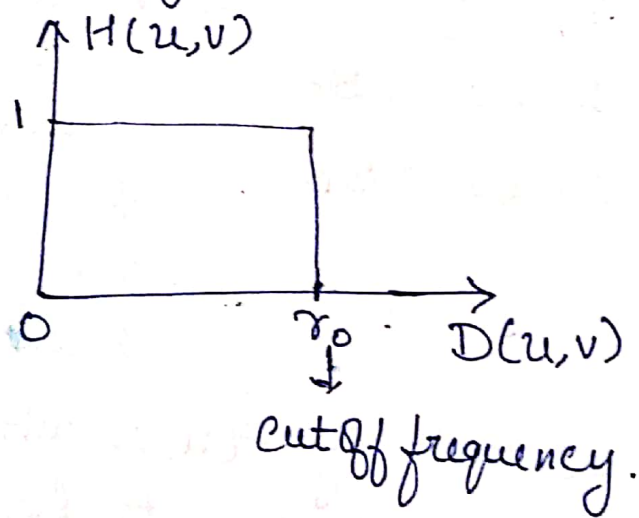 H(u,v)
1
0
r₀
D(u,v)
↓
cutoff frequency.